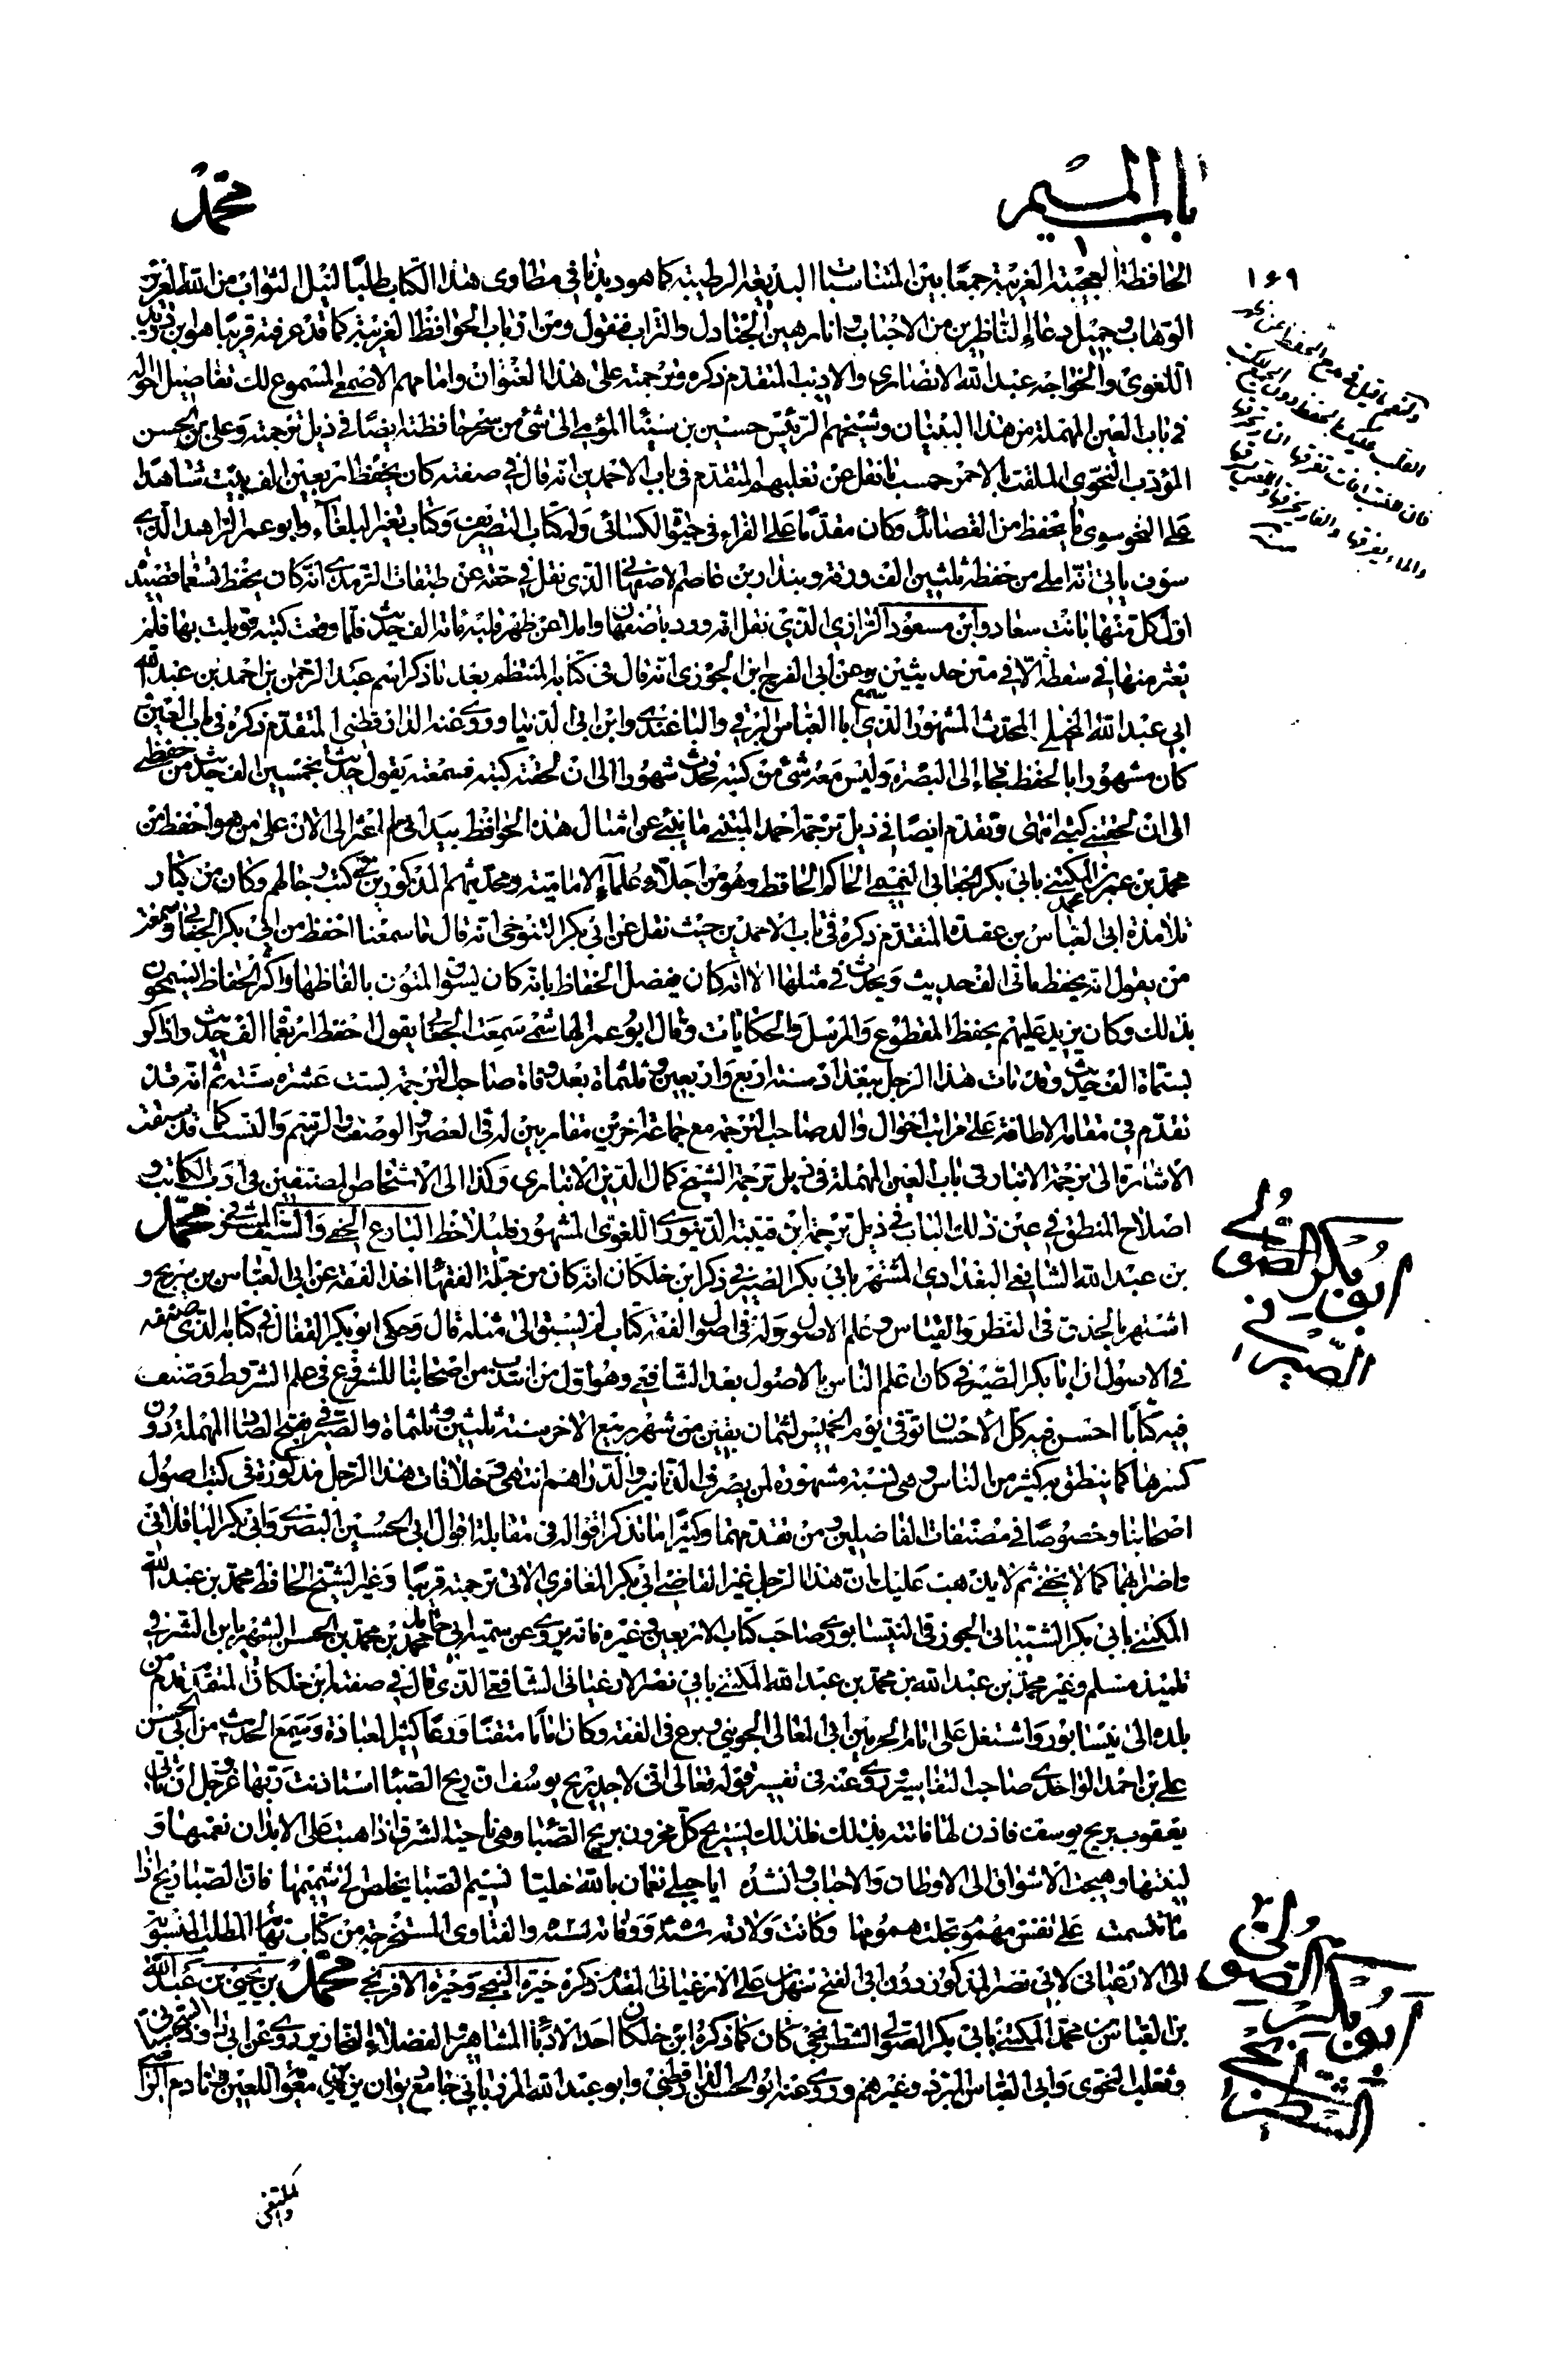 باب الميم
محمد
۱۶۹
الحافظة العجيبة الغريبة جمعا بين المتناسبات البديعة الرطيبة كما هو ديدننا في مطاوى هذا الكتاب طلبا لنيل الثواب من الله العزيز
الوهاب وجميل دعاء الناظرين من الاحباب وانا رهين الجنادل والتراب فنقول ومن ارباب الحوافظ الغريبة كما قد عرفته قريبا هو ابن دريد
اللغوى والخواجه عبد الله الانصارى والاديب المتقدم ذكره وترجمته على هذا العنوان وامامهم الاصمعى المسموع لك تفاصيل احواله
في باب العين المهملة من هذا البنيان وشيخهم الرئيس حسين بن سينا المؤمى الى شئ من سحر حافظته ايضا في ذيل ترجمته وعلى بن الحسن
المؤدب النحوى الملقب بالاحمر حسب ما نقل عن ثعلبهم المتقدم في باب الاحمدين انه قال في صفته كان يحفظ اربعين الف بيت شاهدا
على النحو سوى ما يحفظ من القصائد وكان مقدما على الفراء في حيوة الكسائى وله كتاب التصريف وكتاب تفنن البلغاء وابو عمر الزاهد الذى
سوف ياتى انه املى من حفظه ثلثين الف ورقة وبندار بن عاصم الاصفهانى الذى نقل في حقه عن طبقات الترمدى انه كان يحفظ تسعمأة قصيدة
اول كل منها بانت سعاد وابن مسعود الرازى الذى نقل انه ورد باصفهان واملا عن ظهر قلبه مائة الف حديث فلما وصلت كتبه قوبلت بها فلم
يعثر منها في سقطة الا في متن حديثين وعن ابى الفرج ابن الجوزى انه قال في كتابه المنتظم بعد ما ذكر اسم عبد الرحمن بن احمد بن عبد الله
ابى عبد الله الختلى المحدث المشهور الذى سمع ابا العباس البرتى والباغندى وابن ابى الدنيا وروى عنه الدارقطنى المتقدم ذكره في باب العين
كان مشهورا بالحفظ فجاء الى البصرة وليس معه شئ من كتبه فحدث شهورا الى ان لحقته كتبه فسمعته يقول حدثت بخمسين الف حديث من حفظى
الى ان لحقتنى كتبى انتهى وتقدم ايضا في ذيل ترجمة احمد المتنبى ما ينبئ عن امثال هذه الحوافظ بيد انى لم اعثر الى الان على من هو احفظ من
محمد بن عمر بن محمد المكنى بابى بكر الجعابى التميمى الحاكم الحافظ وهو من اجلاء علماء الامامية ومحدثيهم المذكورين في كتب رجالهم وكان من كبار
تلامذة ابى العباس بن عقدة المتقدم ذكره في باب الاحمدين حيث نقل عن ابى بكر التنوخى انه قال ما سمعنا احفظ من ابى بكر الجعابى وسمعت
من يقول انه يحفظ مأتى الف حديث ويحدث في مثلها الا انه كان يفضل الحفاظ بانه كان يسوق المتون بالفاظها واكثر الحفاظ يتسمحون
بذلك وكان يزيد عليهم بحفظ المقطوع والمرسل والحكايات وقال ابو عمر الهاشمى سمعت الجعابى يقول احفظ اربعمأة الف حديث واذاكر
بستمأة الف حديث وقد مات هذا الرجل ببغداد سنة اربع واربعين وثلثمأة بعد وفاة صاحب الترجمة بست عشرة سنة ثم انه قد
تقدم في مقام الاطافة على مراتب احوال والد صاحب الترجمة مع جماعة اخرين مقاربين له في العصر والوصف والرسم والنسب كما قد سبقت
الاشارة الى ترجمة الانبار في باب العين المهملة في ذيل ترجمة الشيخ كمال الدين الانبارى وكذا الى الاشخاص المصنفين في ادب الكاتب و
اصلاح المنطق في عين ذلك الباب في ذيل ترجمة ابن قتيبة الدينورى اللغوى المشهور فليلاحظ البارع الخى والسيف المشرفى محمد
بن عبد الله الشافعى البغدادى المشتهر بابى بكر الصيرفى ذكر ابن خلكان انه كان من جملة الفقهاء اخذ الفقه عن ابى العباس بن سريج و
اشتهر بالحذق في النظر والقياس وعلم الاصول وله في اصول الفقه كتاب لم يسبق الى مثله قال وحكى ابو بكر القفال في كتابه الذى صنفه
في الاصول ان ابا بكر الصيرفى كان اعلم الناس بالاصول بعد الشافعى وهو اول من انتدب من اصحابنا للشروع في علم الشروط وصنف
فيه كتابا احسن فيه كل الاحسان توفى يوم الخميس لثمان بقين من شهر ربيع الاخر سنة ثلثين وثلثمأة والصيرفى بفتح الصاد المهملة دون
كسرها كما ينطق به كثير من الناس وهى نسبة مشهورة لمن يصرف الدنانير والدراهم انتهى وخلافات هذا الرجل مذكورة في كتب اصول
اصحابنا وخصوصا في مصنفات الفاضلين ومن تقدمهما وكثيرا ما تذكر اقواله في مقابلة اقوال ابى الحسين البصرى وابى بكر الباقلانى
واضرابهما كما لا يخفى ثم لا يذهب عليك ان هذا الرجل غير القاضى ابى بكر المعافرى الاتى ترجمته قريبا وغير الشيخ الحافظ محمد بن عبد الله
المكنى بابى بكر الشيبانى الجوزقى النيسابورى صاحب كتاب الاربعين وغيره فانه يروى عن سميه ابى حامد محمد بن محمد بن الحسن الشهير بابن الشرقى
تلميذ مسلم وغير محمد بن عبد الله بن محمد بن عبد الله المكنى بابى نصر الارغيانى الشافعى الذى قال في صفته ابن خلكان المتقدم قدم من
بلده الى نيسابور واشتغل على امام الحرمين ابى المعالى الجوينى وبرع في الفقه وكان اماما متقنا ورعا كثير العبادة وسمع الحديث من ابى الحسن
على بن احمد الواحدى صاحب التفاسير وروى عنه في تفسير قوله تعالى انى لاجد ريح يوسف ان ريح الصبا استاذنت ربها عز وجل ان تاتى
يعقوب بريح يوسف فاذن لها فاتته بذلك فلذلك يستريح كل محزون بريح الصبا وهى ناحية الشرق اذا هبت على الابدان نعمتها و
لينتها وهيجت الاشواق الى الاوطان والاحباب وانشد ايا جبلى نعمان بالله خليا نسيم الصبا يخلص الى نسيمها فان الصبا ريح اذا
ما تنسمت على نفس مهموم تجلت همومها وكانت ولادته سنة ووفاته سنة والفتاوى المستخرجة من كتاب نهاية المطلب المنسوبة
الى الارغيانى لابى نصر المذكور دون ابى الفتح سهل بن على الارغيانى المقدم ذكره خيرة النهج وخيرة الافرنج محمد بن يحيى بن عبد الله
بن العباس بن محمد المكنى بابى بكر الصولى الشطرنجى كان كما ذكره ابن خلكان احد الادباء المشاهير الفضلاء النحارير روى عن ابى داود السجستانى
وثعلب النحوى وابى العباس المبرد وغيرهم وروى عنه ابو الحسن الدارقطنى وابو عبد الله المرزبانى جامع ديوان يزيد بن معوية اللعين ونادم الراضى
والمكتفى
ابو بكر الصولى
الصيرفى
ابو بكر الصولى
الشطرنجى